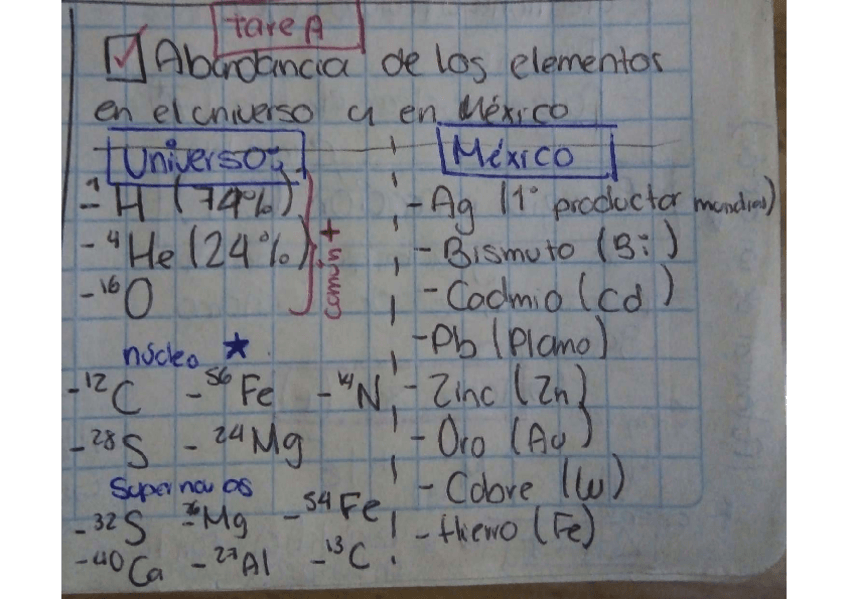 tareA
Abundancia de los elementos
en el universo y en México
Universo:
-¹H (74%)
-⁴He (24%)
-¹⁶O
común +
núcleo ★
-¹²C -⁵⁶Fe -¹⁴N
-²⁸S -²⁴Mg
Supernovas
-³²S -²⁶Mg -⁵⁴Fe
-⁴⁰Ca -²⁷Al -¹³C
México
-Ag (1° productor mundial)
-Bismuto (Bi)
-Cadmio (Cd)
-Pb (Plomo)
-Zinc (Zn)
-Oro (Au)
-Cobre (Cu)
-Hierro (Fe)